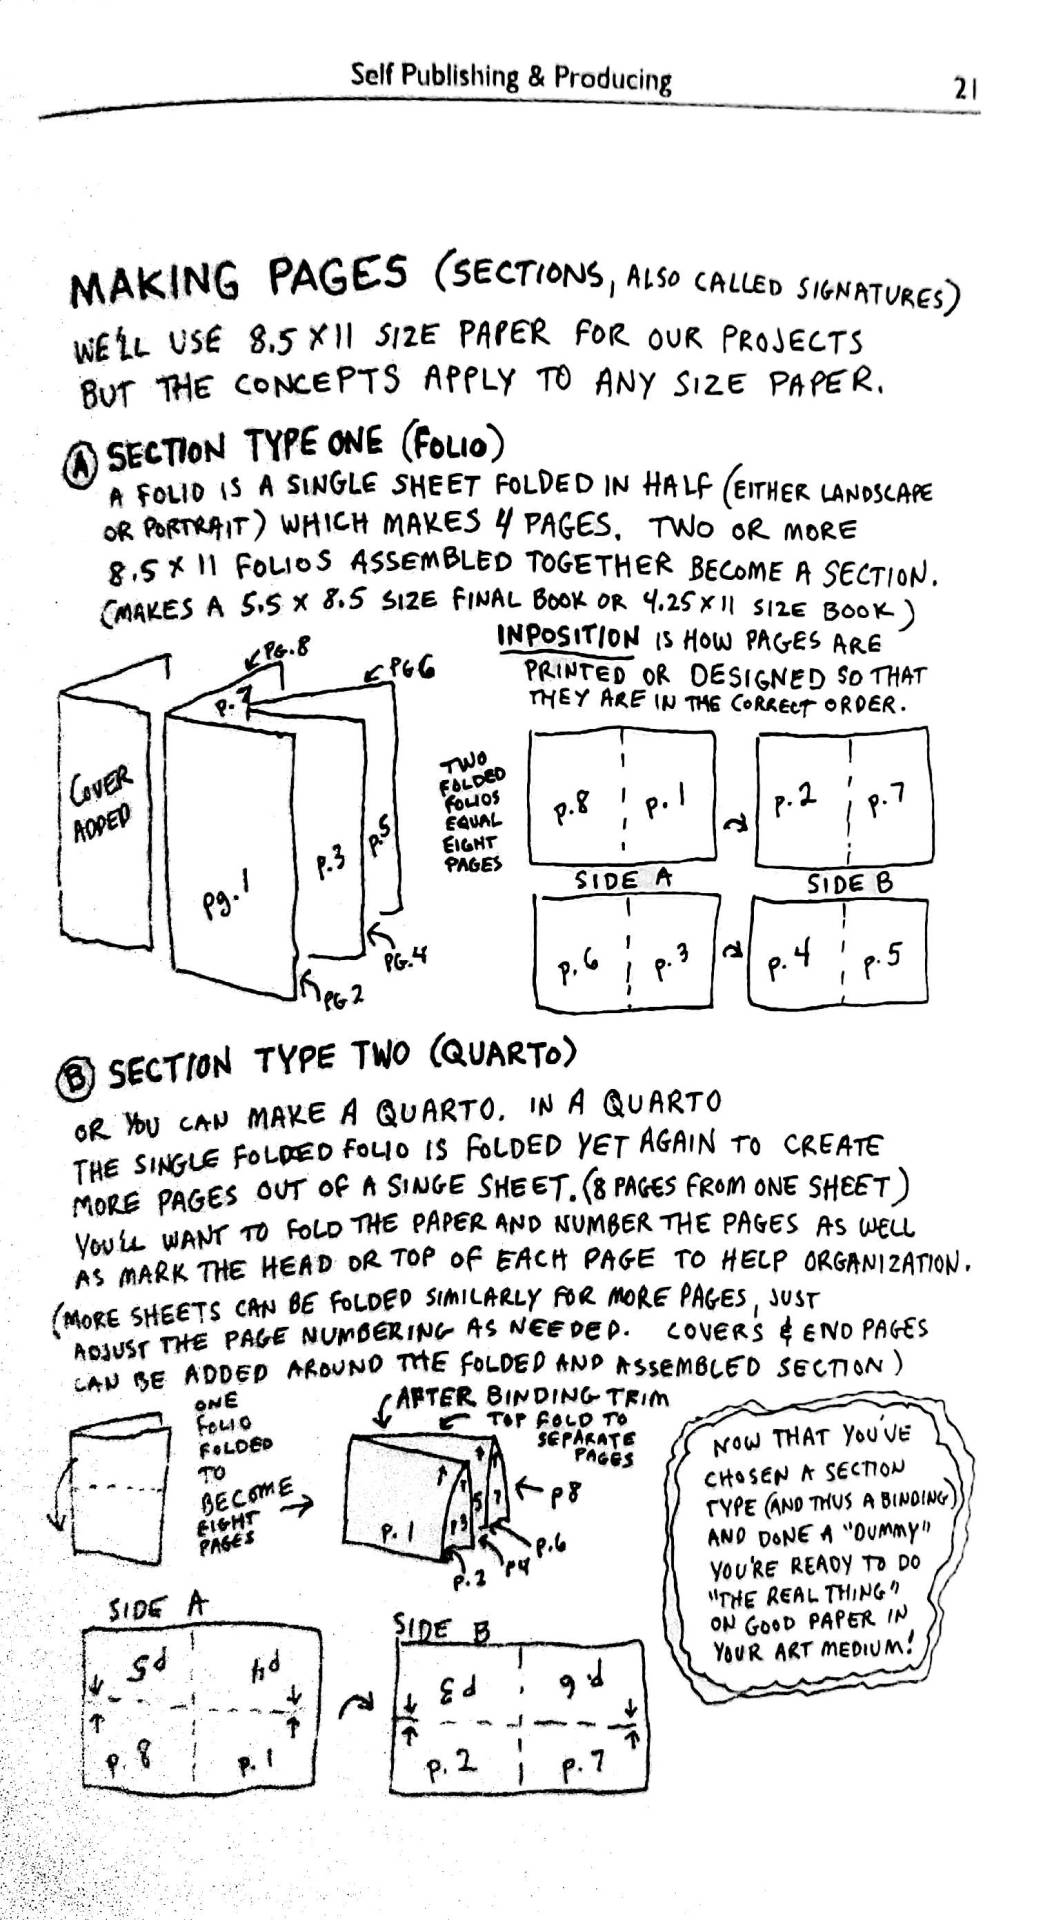 Self Publishing & Producing
21
MAKING PAGES (SECTIONS, ALSO CALLED SIGNATURES)
WE'LL USE 8.5 X 11 SIZE PAPER FOR OUR PROJECTS
BUT THE CONCEPTS APPLY TO ANY SIZE PAPER.
A SECTION TYPE ONE (FOLIO)
A FOLIO IS A SINGLE SHEET FOLDED IN HALF (EITHER LANDSCAPE
OR PORTRAIT) WHICH MAKES 4 PAGES. TWO OR MORE
8.5 X 11 FOLIOS ASSEMBLED TOGETHER BECOME A SECTION.
(MAKES A 5.5 X 8.5 SIZE FINAL BOOK OR 4.25 X 11 SIZE BOOK)
INPOSITION IS HOW PAGES ARE
PRINTED OR DESIGNED SO THAT
THEY ARE IN THE CORRECT ORDER.
PG.8
PG6
P.7
COVER
ADDED
pg.1
P.3
P.5
PG.4
PG2
TWO
FOLDED
FOLIOS
EQUAL
EIGHT
PAGES
p.8
p.1
p.2
p.7
SIDE A
SIDE B
p.6
p.3
p.4
p.5
B SECTION TYPE TWO (QUARTO)
OR YOU CAN MAKE A QUARTO. IN A QUARTO
THE SINGLE FOLDED FOLIO IS FOLDED YET AGAIN TO CREATE
MORE PAGES OUT OF A SINGE SHEET. (8 PAGES FROM ONE SHEET)
YOU'LL WANT TO FOLD THE PAPER AND NUMBER THE PAGES AS WELL
AS MARK THE HEAD OR TOP OF EACH PAGE TO HELP ORGANIZATION.
(MORE SHEETS CAN BE FOLDED SIMILARLY FOR MORE PAGES, JUST
ADJUST THE PAGE NUMBERING AS NEEDED. COVERS & END PAGES
CAN BE ADDED AROUND THE FOLDED AND ASSEMBLED SECTION)
ONE
FOLIO
FOLDED
TO
BECOME
EIGHT
PAGES
AFTER BINDING TRIM
TOP FOLD TO
SEPARATE
PAGES
P.1
P3
5
7
p8
p.6
p4
p.2
NOW THAT YOU'VE
CHOSEN A SECTION
TYPE (AND THUS A BINDING)
AND DONE A "DUMMY"
YOU'RE READY TO DO
"THE REAL THING"
ON GOOD PAPER IN
YOUR ART MEDIUM!
SIDE A
p5
p4
p.8
p.1
SIDE B
p3
p.6
p.2
p.7